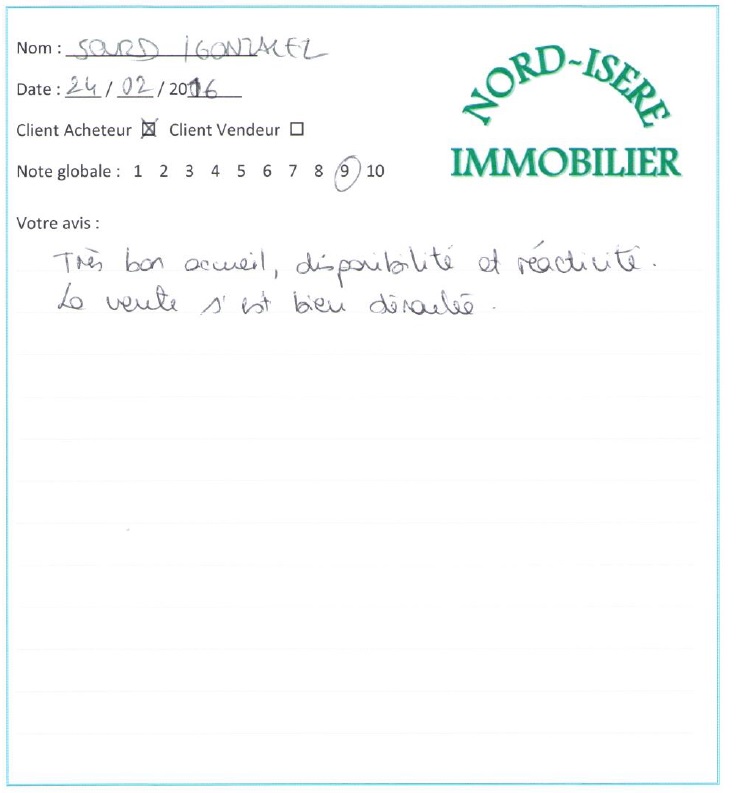 Nom : SOURD / GONZALEZ
Date : 24 / 02 / 2016
Client Acheteur ☒ Client Vendeur ☐
Note globale : 1 2 3 4 5 6 7 8 9 10
NORD-ISERE
IMMOBILIER
Votre avis :
Très bon accueil, disponibilité et réactivité.
La vente s'est bien déroulée.